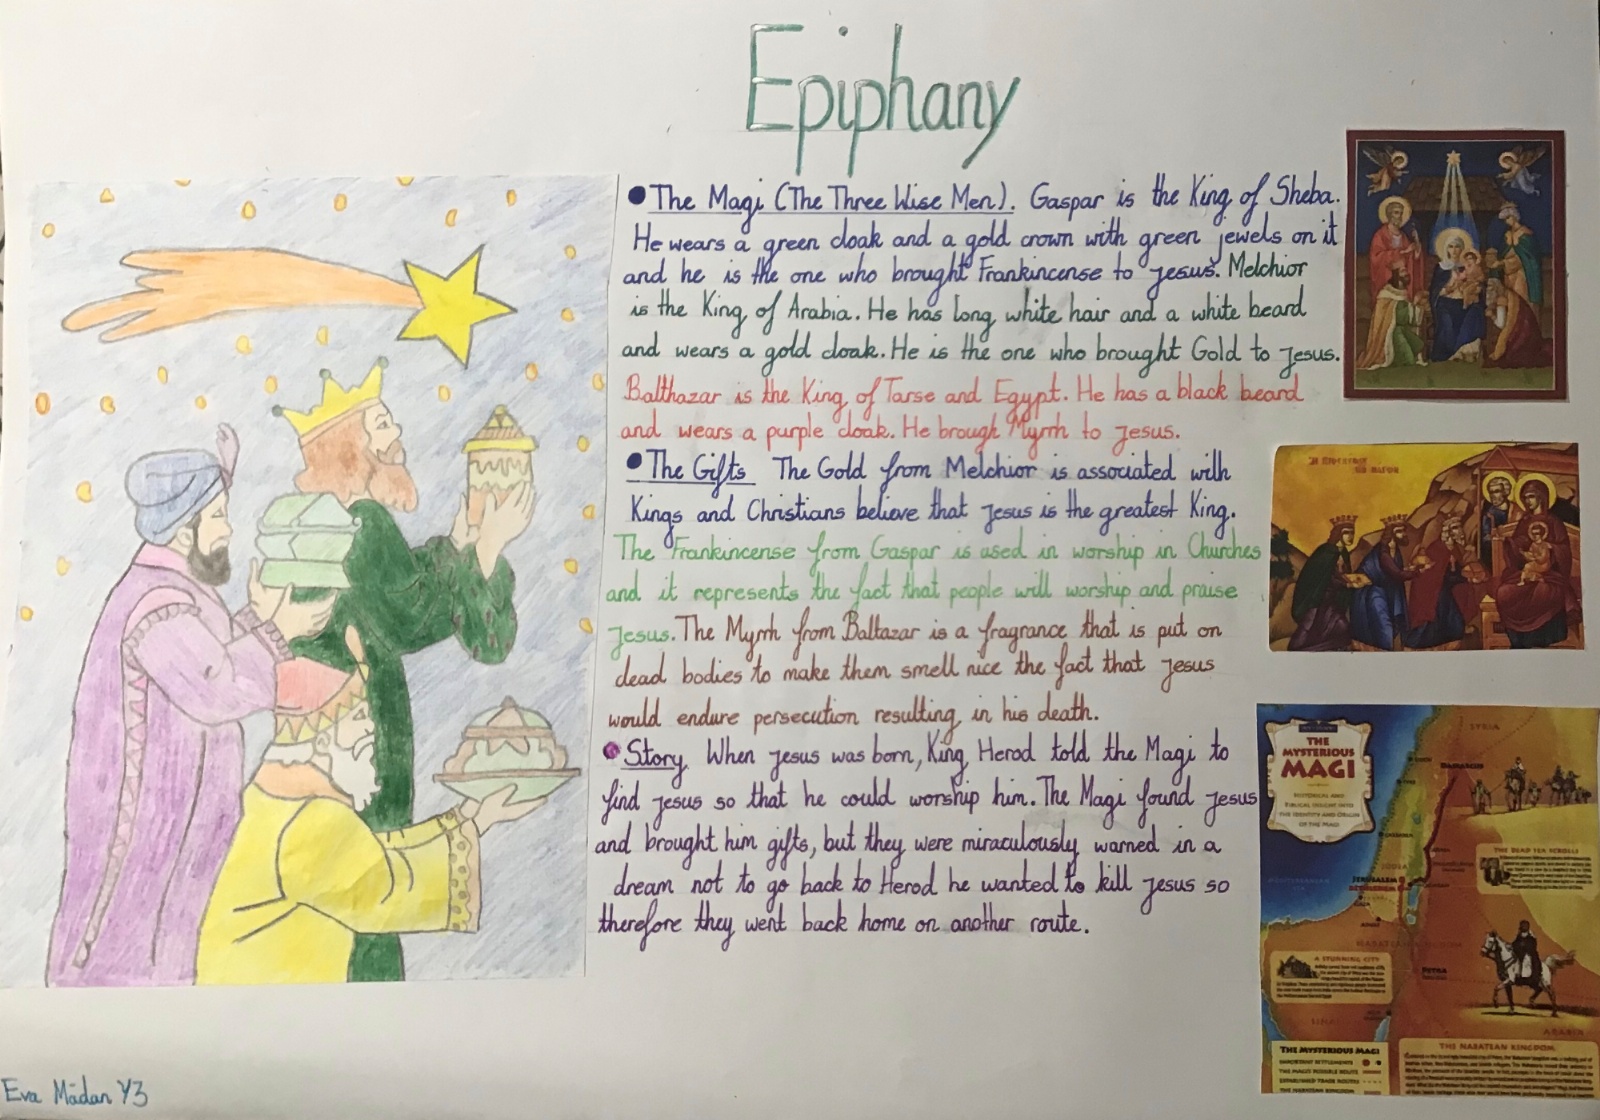 Epiphany
• The Magi (The Three Wise Men). Gaspar is the King of Sheba.
He wears a green cloak and a gold crown with green jewels on it
and he is the one who brought Frankincense to Jesus. Melchior
is the King of Arabia. He has long white hair and a white beard
and wears a gold cloak. He is the one who brought Gold to Jesus.
Balthazar is the King of Tarse and Egypt. He has a black beard
and wears a purple cloak. He brough Myrrh to Jesus.
• The Gifts The Gold from Melchior is associated with
Kings and Christians believe that Jesus is the greatest King.
The Frankincense from Gaspar is used in worship in Churches
and it represents the fact that people will worship and praise
Jesus. The Myrrh from Baltazar is a fragrance that is put on
dead bodies to make them smell nice the fact that Jesus
would endure persecution resulting in his death.
• Story When Jesus was born, King Herod told the Magi to
find Jesus so that he could worship him. The Magi found Jesus
and brought him gifts, but they were miraculously warned in a
dream not to go back to Herod he wanted to kill Jesus so
therefore they went back home on another route.
Eva Mădan Y3
THE
MYSTERIOUS
MAGI
HISTORICAL AND
BIBLICAL INSIGHT INTO
THE IDENTITY AND ORIGIN
OF THE MAGI
SYRIA
DAMASCUS
THE DEAD SEA SCROLLS
JERUSALEM
BETHLEHEM
A STUNNING CITY
PETRA
ARABIA
THE MYSTERIOUS MAGI
IMPORTANT SETTLEMENTS
THE MAGI'S POSSIBLE ROUTE
ESTABLISHED TRADE ROUTES
THE NABATEAN KINGDOM
THE NABATEAN KINGDOM